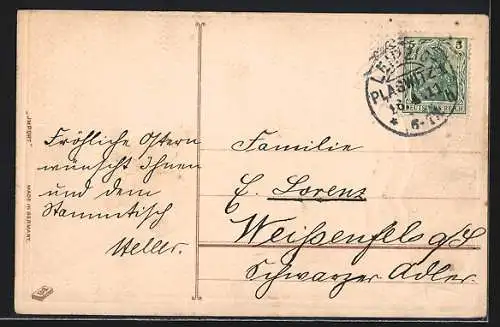 LEIPZIG
PLAGWITZ
6-7
5
DEUTSCHES REICH
"IMPORT"
MADE IN GERMANY.
Fröhliche Ostern
wünscht Ihnen
und dem
Stammtisch
Weller.
Familie
E. Lorenz
Weißenfels a/S
Schwarzer Adler.